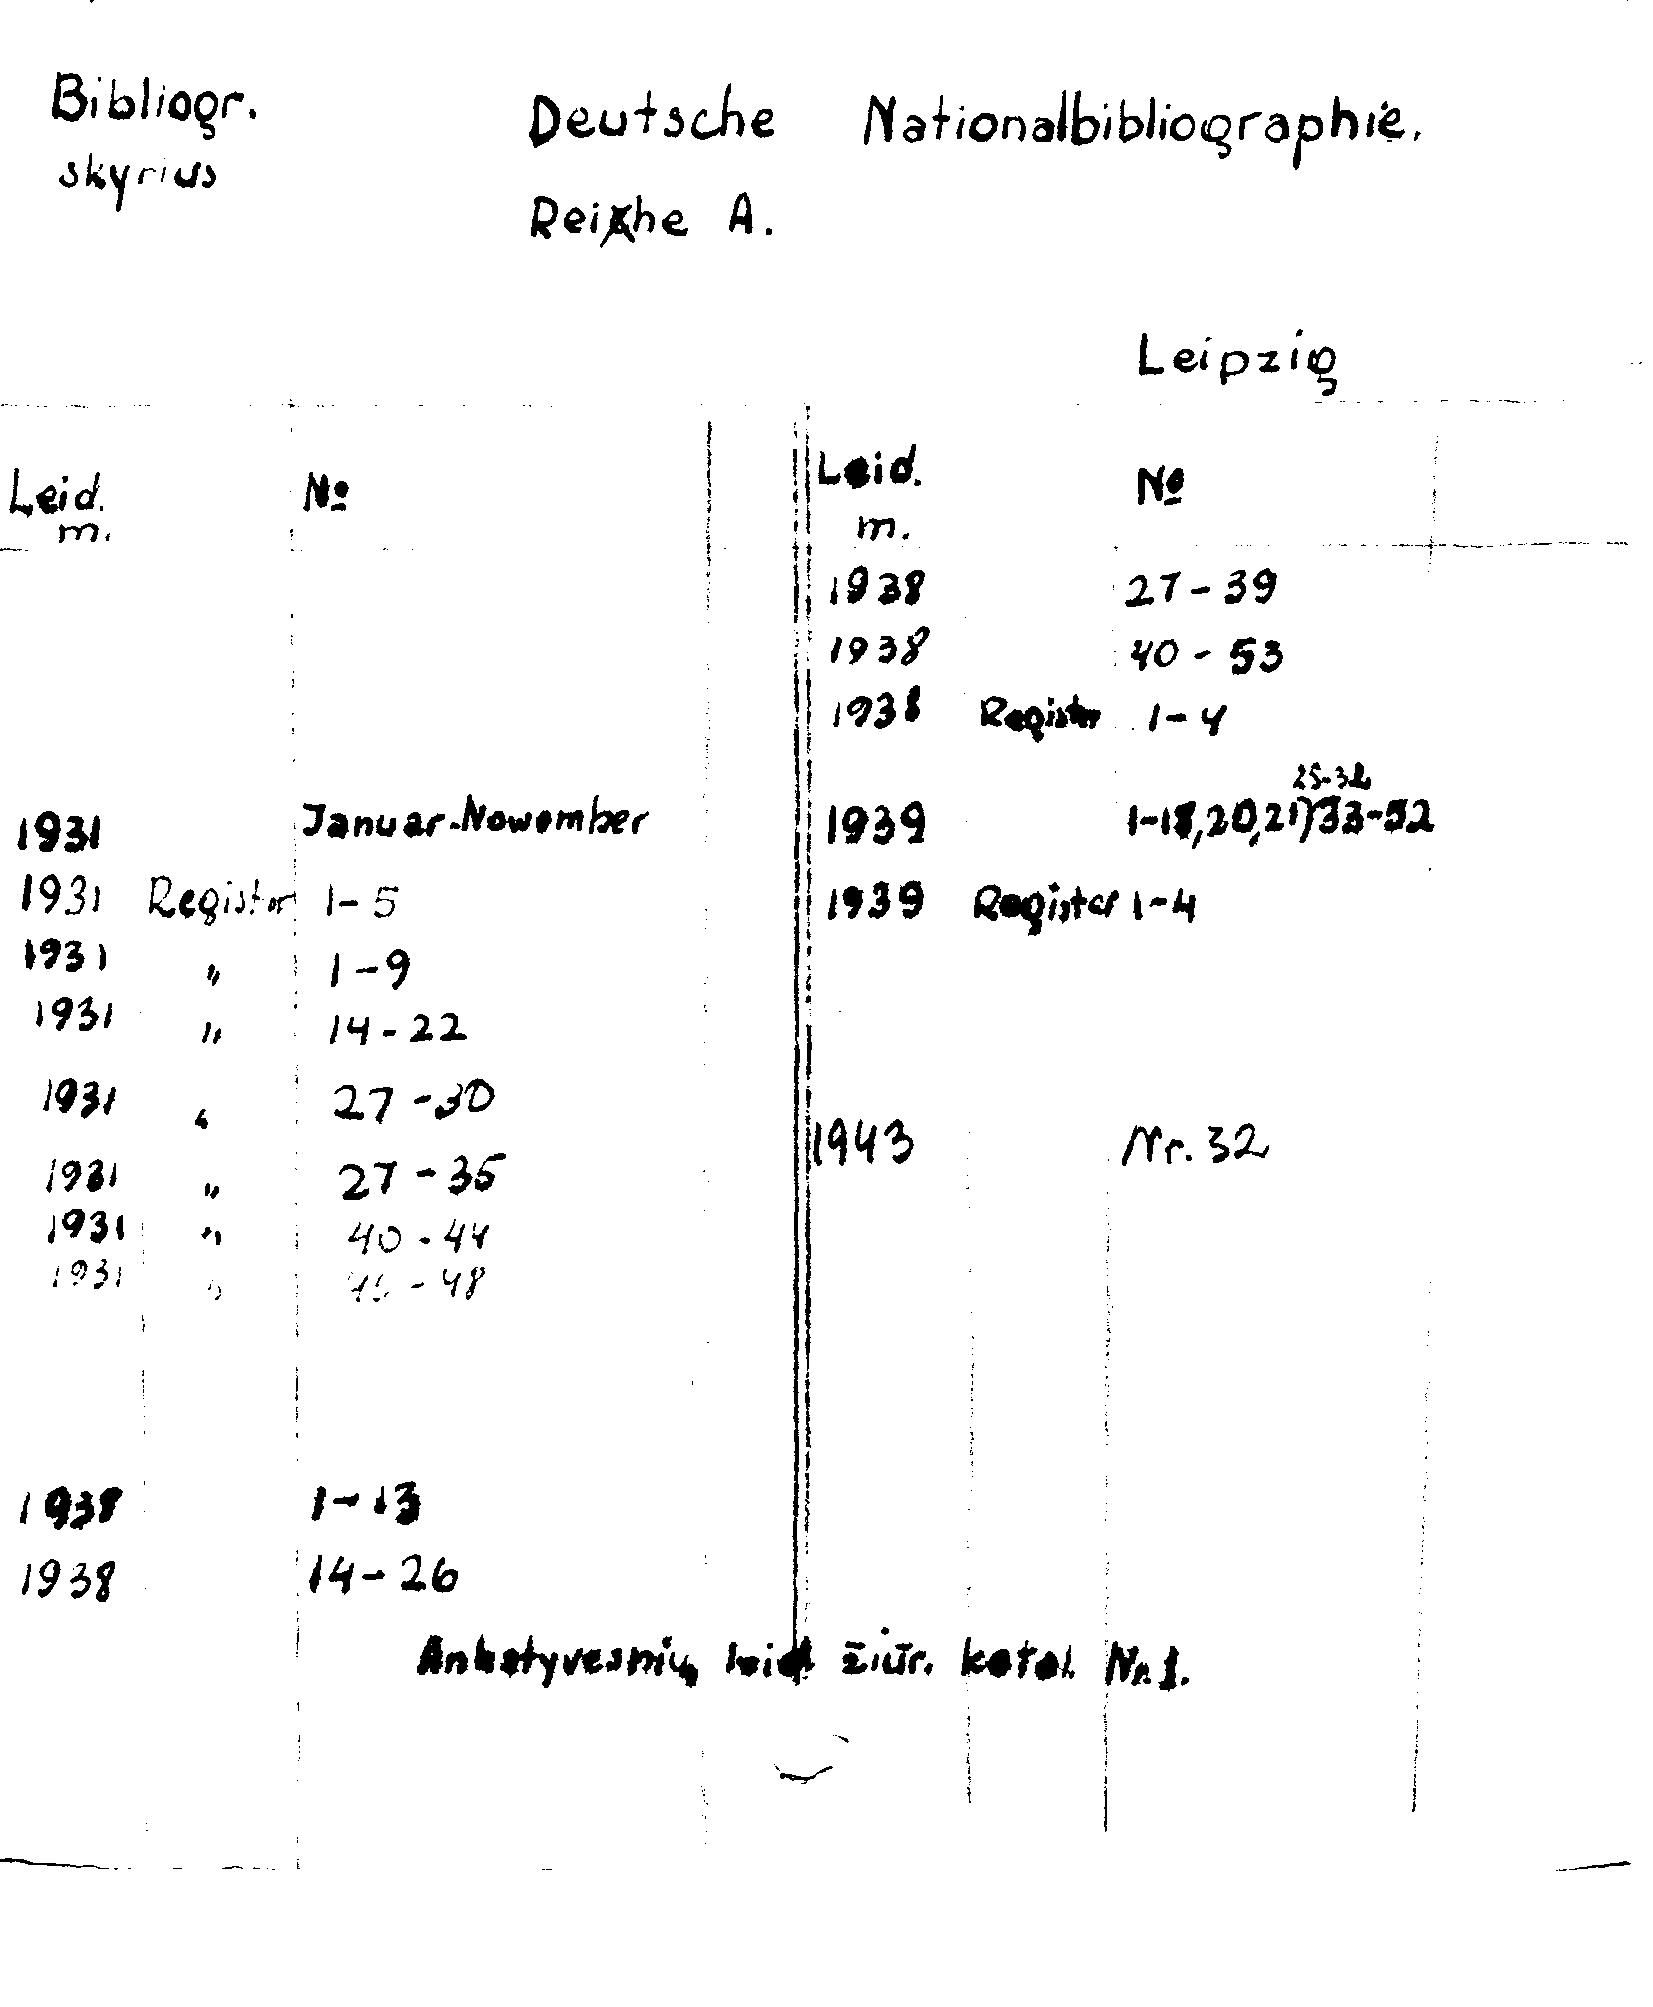 Bibliogr.
skyrius
Deutsche Nationalbibliographie.
Reihe A.
Leipzig
Leid. m. №
1931 Januar-Nowember
1931 Register 1-5
1931 " 1-9
1931 " 14-22
1931 " 27-30
1931 " 27-35
1931 " 40-44
1931 " 45-48
1938 1-13
1938 14-26
Leid. m. №
1938 27-39
1938 40-53
1938 Register 1-4
25-32
1939 1-18,20,21,33-52
1939 Register 1-4
1943 Nr. 32
Ankstyvesnių leid. žiūr. katal. Nr. 1.